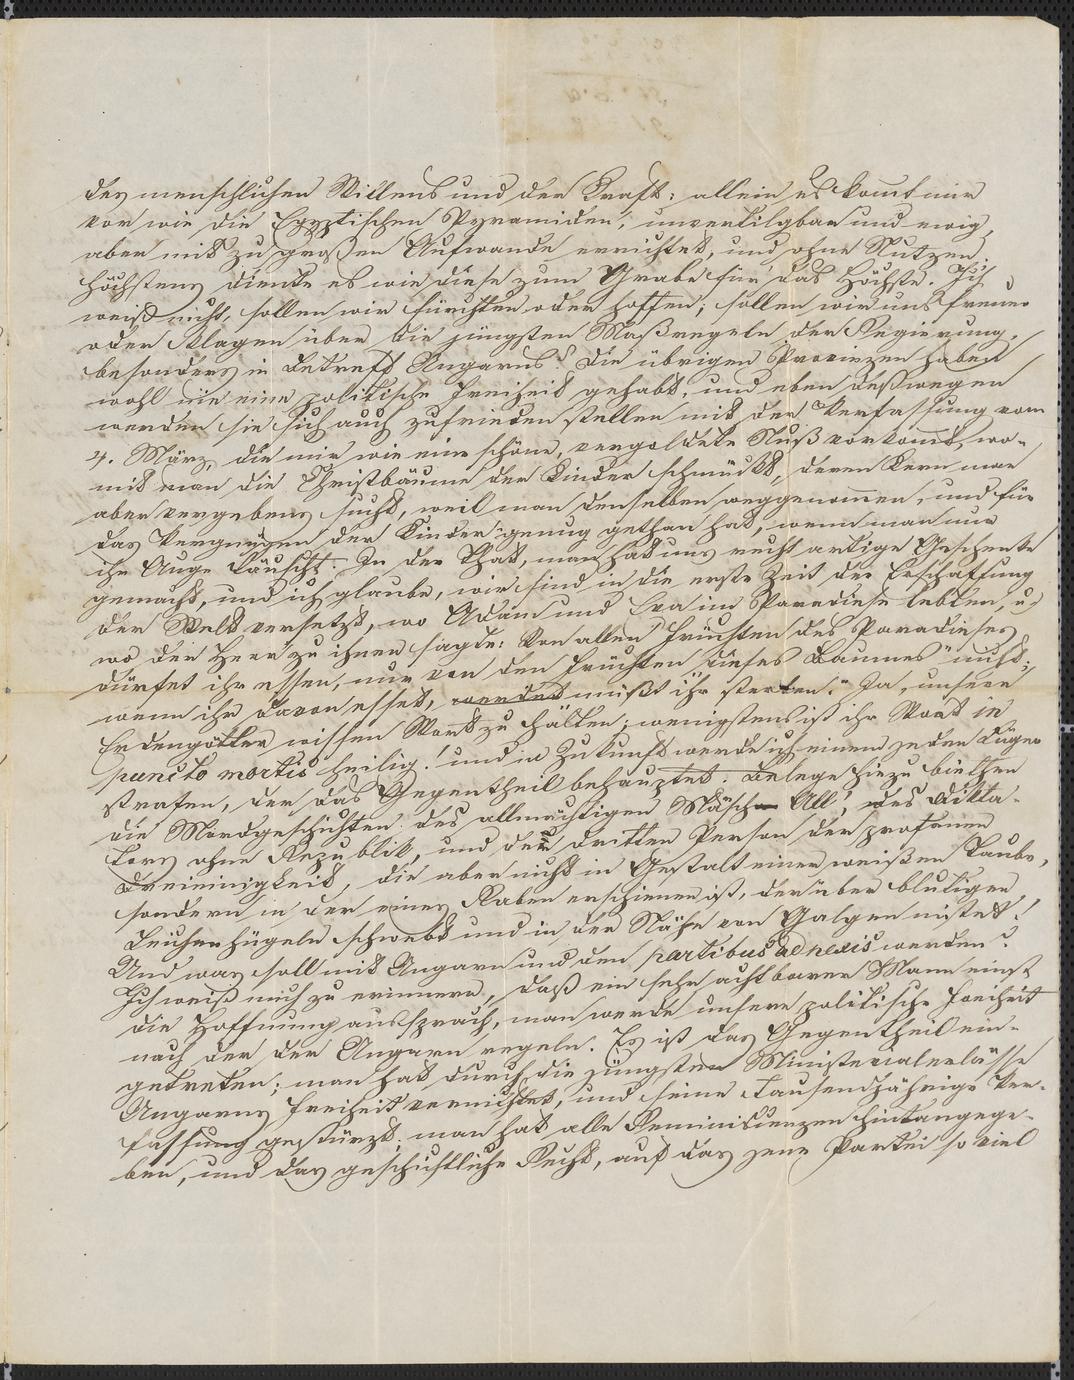 des menschlichen Willens und der Kraft: allein es komt mir
vor wie die Egyptischen Pyramiden, unvertilgbar und ewig,
aber mit zu großen Aufwande errichtet, und ohne Nutzen;
höchstens diente es wie diese zum Grabe für das Höchste. Ich
weiß nicht, sollen wir fürchten oder hoffen; sollen wir uns freuen
oder klagen über die jüngsten Maßregeln der Regierung,
besonders in Betreff Ungarns? Die übrigen Provinzen haben
wohl nie eine politische Freiheit gehabt, und eben deßwegen
werden sie sich auch zufrieden stellen mit der Verfassung vom
4. März, die mir wie eine schöne, vergoldete Nuß vorkömt, wo-
mit man die Christbäume der Kinder schmückt, deren Kern man
aber vergebens sucht, weil man denselben weggenommen, und für
das Vergnügen der Kinder genug gethan hat, wenn man nur
ihr Auge täuscht. In der That, man hat uns recht artige Geschenke
gemacht, und ich glaube, wir sind in die erste Zeit der Erschaffung
der Welt versetzt, wo Adam und Eva im Paradiese lebten, u.
wo der Herr zu ihnen sagte: Von allen Früchten des Paradieses
dürfet ihr essen, nur von den Früchten dieses Baumes nicht;
wenn ihr davon esset, werdet müßt ihr sterben." Ja, unsere
Erdengötter wissen Wort zu halten; wenigstens ist ihr Wort in
puncto mortis heilig! und in Zukunft werde ich einen jeden Lügen
strafen, der das Gegentheil behauptet. Belege hiezu biethen
die Mordgeschichten des allmächtigen All, des Dikta-
tors ohne Republik, und der dritten Person der profanen
Dreieinigkeit, die aber nicht in Gestalt einer weißen Taube,
sondern in der eines Raben erschienen ist, der über blutigen
Leichenhügeln schwebt und in der Nähe von Galgen nistet!
Und was soll mit Ungarn und den partibus adnexis werden?
Ich weiß mich zu erinnern, daß ein sehr achtbarer Mann einst
die Hoffnung aussprach, man werde unsere politische Freiheit
nach der der Ungarn regeln. Es ist das Gegentheil ein-
getreten; man hat durch die jüngsten Ministerialerlässe
Ungarns Freiheit vernichtet, und seine tausendjährige Ver-
fassung gestürzt; man hat alle Reminiscenzen hintangege-
ben, und das geschichtliche Recht, auf das jene Partei so viel